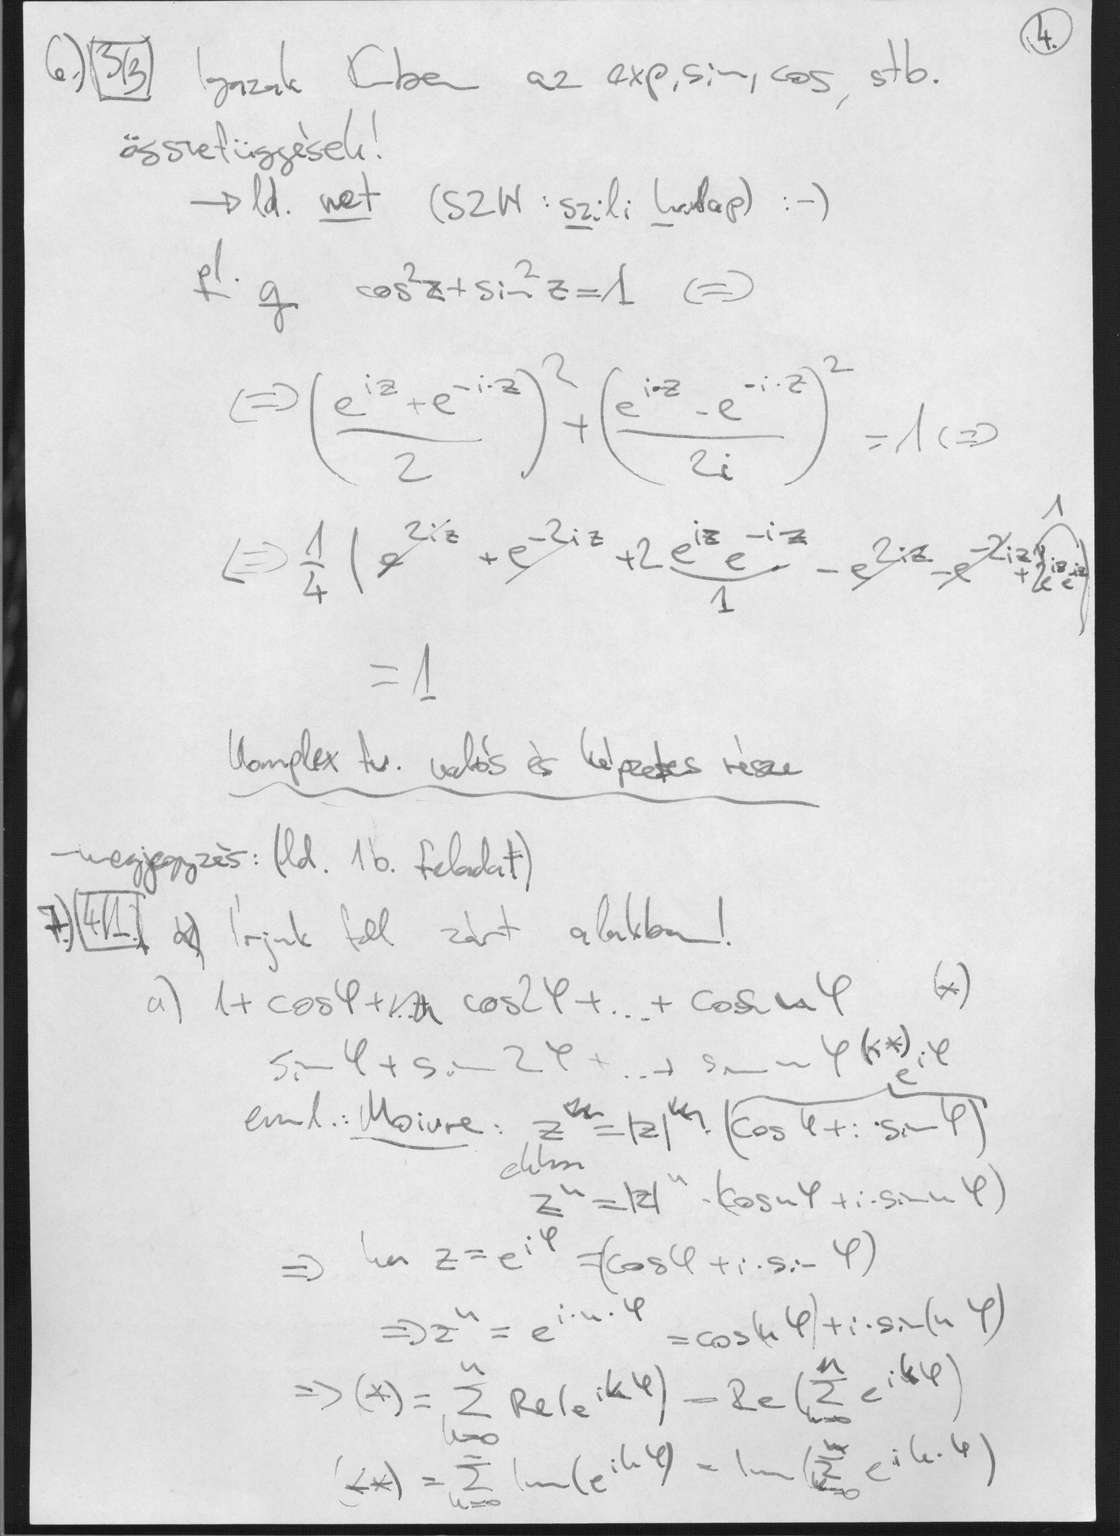 4.
6.) 3/3 Igazak ℂben az exp, sin, cos, stb.
összefüggések!
→ ld. net (SZW: szili honlap) :-)
pl. g cos²z + sin²z = 1 ⟺
⟺ ((e^{iz} + e^{-i·z})/2)² + ((e^{i·z} - e^{-i·z})/2i)² = 1 ⟺
⟺ 1/4 (e^{2iz} + e^{-2iz} + 2 e^{iz} e^{-iz} - e^{2iz} - e^{-2iz} + 2e^{iz} e^{-iz})
1 1
= 1
Komplex fv. valós és képzetes része
- megjegyzés: (ld. 1b. feladat)
7.) 4/1. Írjuk fel zárt alakban!
a) 1 + cosφ + cos2φ + ... + cos nφ (*)
sinφ + sin2φ + ... + sin nφ (**)
eml.: Moivre: z = |z| · (cosφ + i·sinφ) e^{iφ}
ekkor
z^n = |z|^n · (cos nφ + i·sin nφ)
⇒ ha z = e^{iφ} = (cosφ + i·sinφ)
⇒ z^n = e^{i·n·φ} = cos(nφ) + i·sin(nφ)
⇒ (*) = Σ_{k=0}^{n} Re(e^{ikφ}) = Re(Σ_{k=0}^{n} e^{ikφ})
(**) = Σ_{k=0}^{n} Im(e^{ikφ}) = Im(Σ_{k=0}^{n} e^{ik·φ})